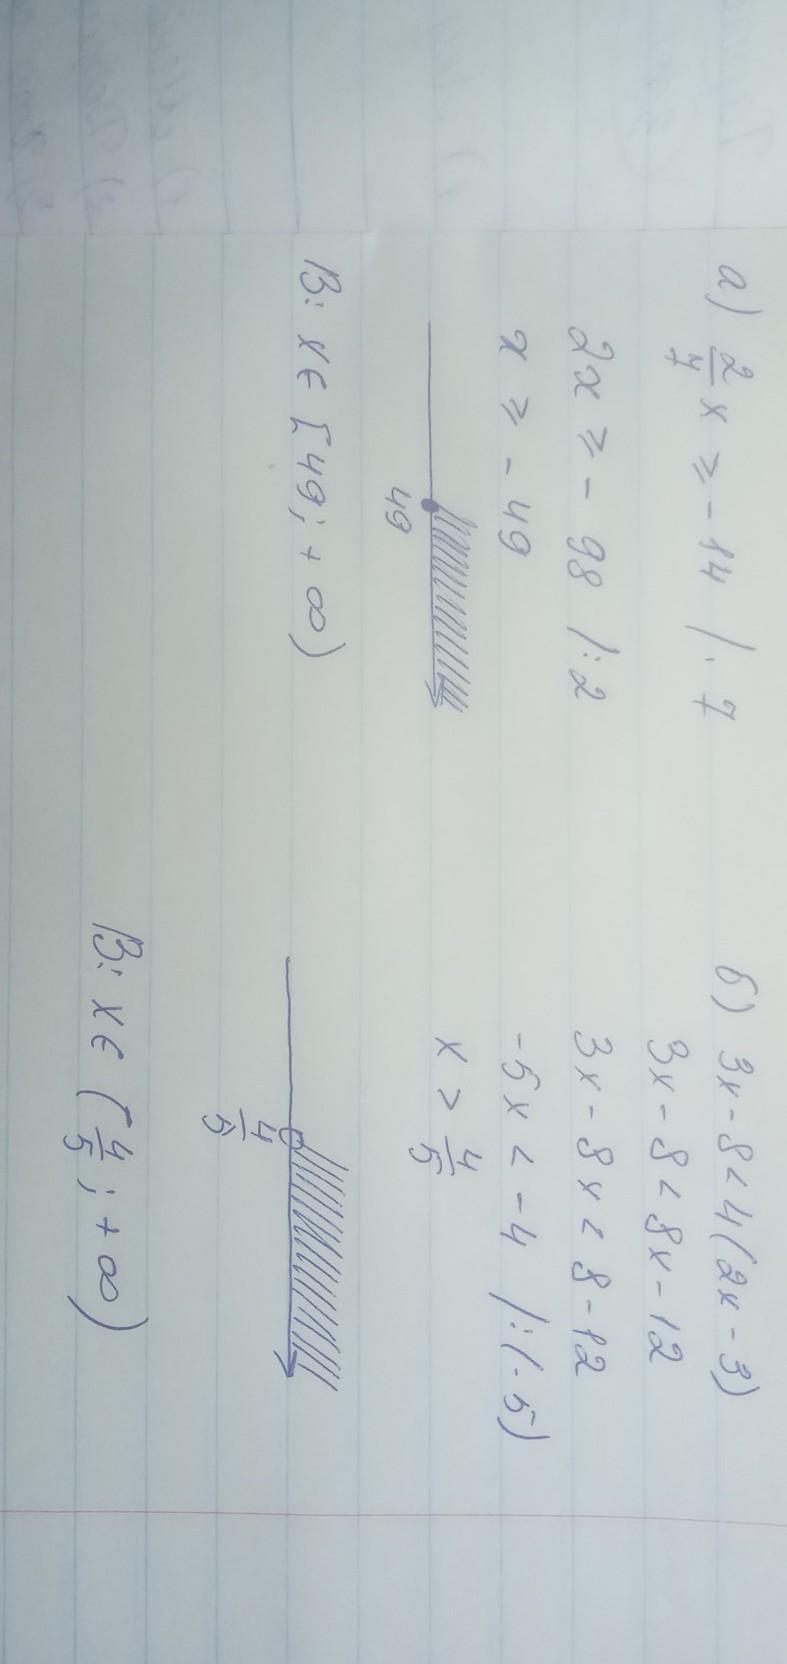 а) 2/7 x ≥ -14 | · 7
2x ≥ - 98 | : 2
x ≥ - 49
49
В: x ∈ [49; + ∞)
б) 3x - 8 < 4(2x - 3)
3x - 8 < 8x - 12
3x - 8x < 8 - 12
-5x < -4 | : (-5)
x > 4/5
4/5
В: x ∈ (4/5; + ∞)